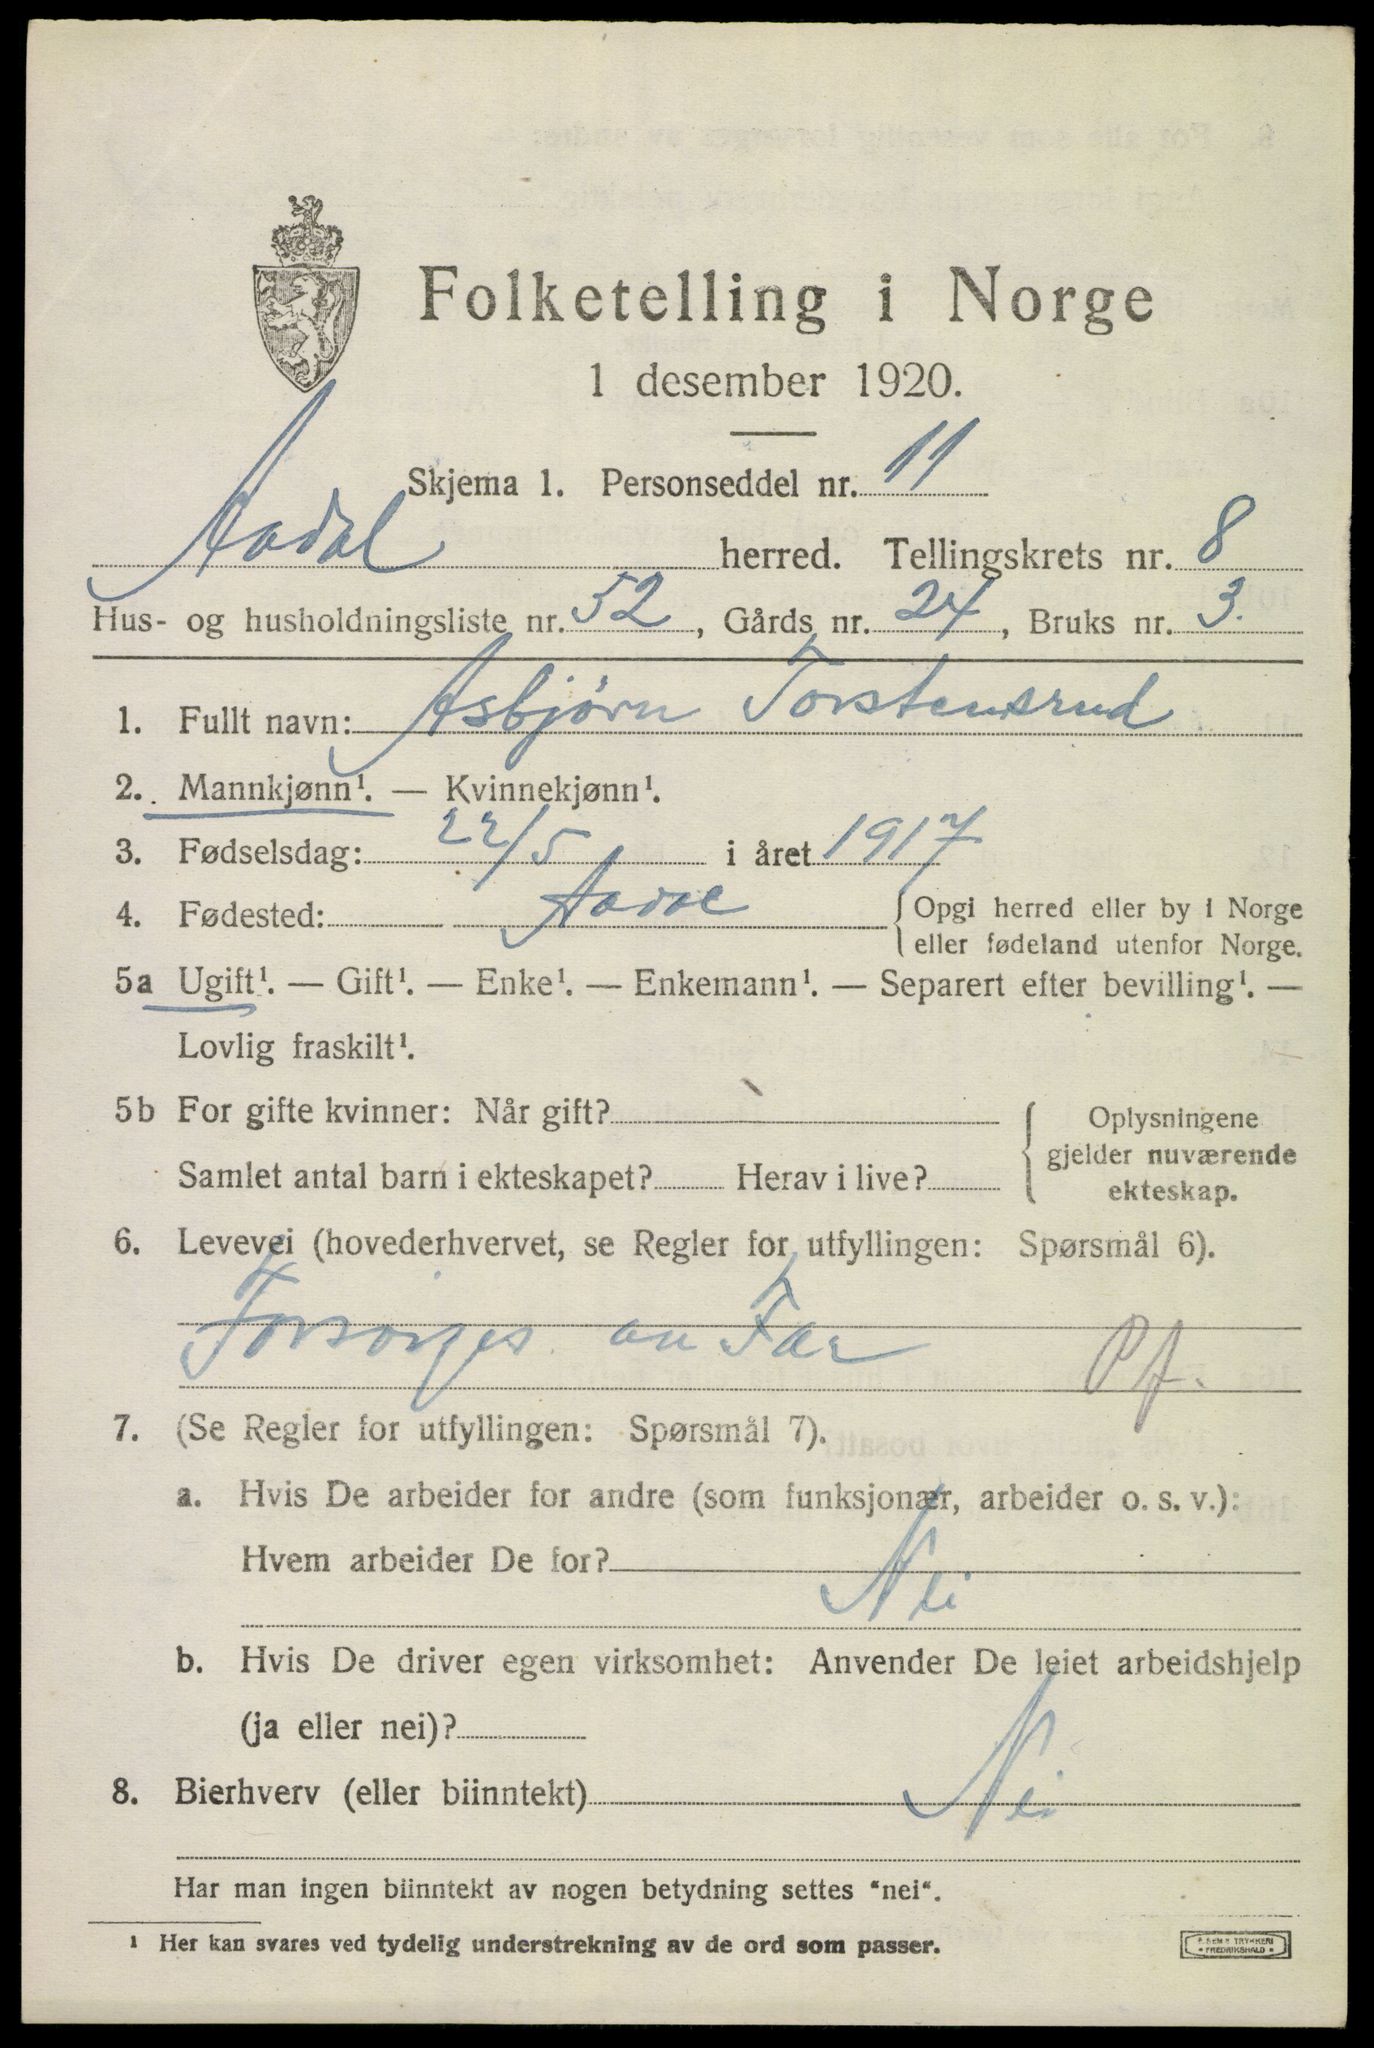 Folketelling i Norge
1 desember 1920.
Skjema 1. Personseddel nr. 11
Aadal herred. Tellingskrets nr. 8
Hus- og husholdningsliste nr. 52, Gårds nr. 24, Bruks nr. 3.
1. Fullt navn: Asbjørn Torstensrud
2. Mannkjønn¹. — Kvinnekjønn¹.
3. Fødselsdag: 22/5 i året 1917
4. Fødested: Aadal { Opgi herred eller by i Norge
eller fødeland utenfor Norge.
5a Ugift¹. — Gift¹. — Enke¹. — Enkemann¹. — Separert efter bevilling¹. —
Lovlig fraskilt¹.
5b For gifte kvinner: Når gift? { Oplysningene
gjelder nuværende
Samlet antal barn i ekteskapet? Herav i live?
ekteskap.
6. Levevei (hovederhvervet, se Regler for utfyllingen: Spørsmål 6).
Forsørges av Far Pf.
7. (Se Regler for utfyllingen: Spørsmål 7).
a. Hvis De arbeider for andre (som funksjonær, arbeider o. s. v.):
Hvem arbeider De for?
Nei
b. Hvis De driver egen virksomhet: Anvender De leiet arbeidshjelp
(ja eller nei)?
8. Bierhverv (eller biinntekt) Nei
Har man ingen biinntekt av nogen betydning settes "nei".
¹ Her kan svares ved tydelig understrekning av de ord som passer.
TRYKKERI
FREDRIKSHALD